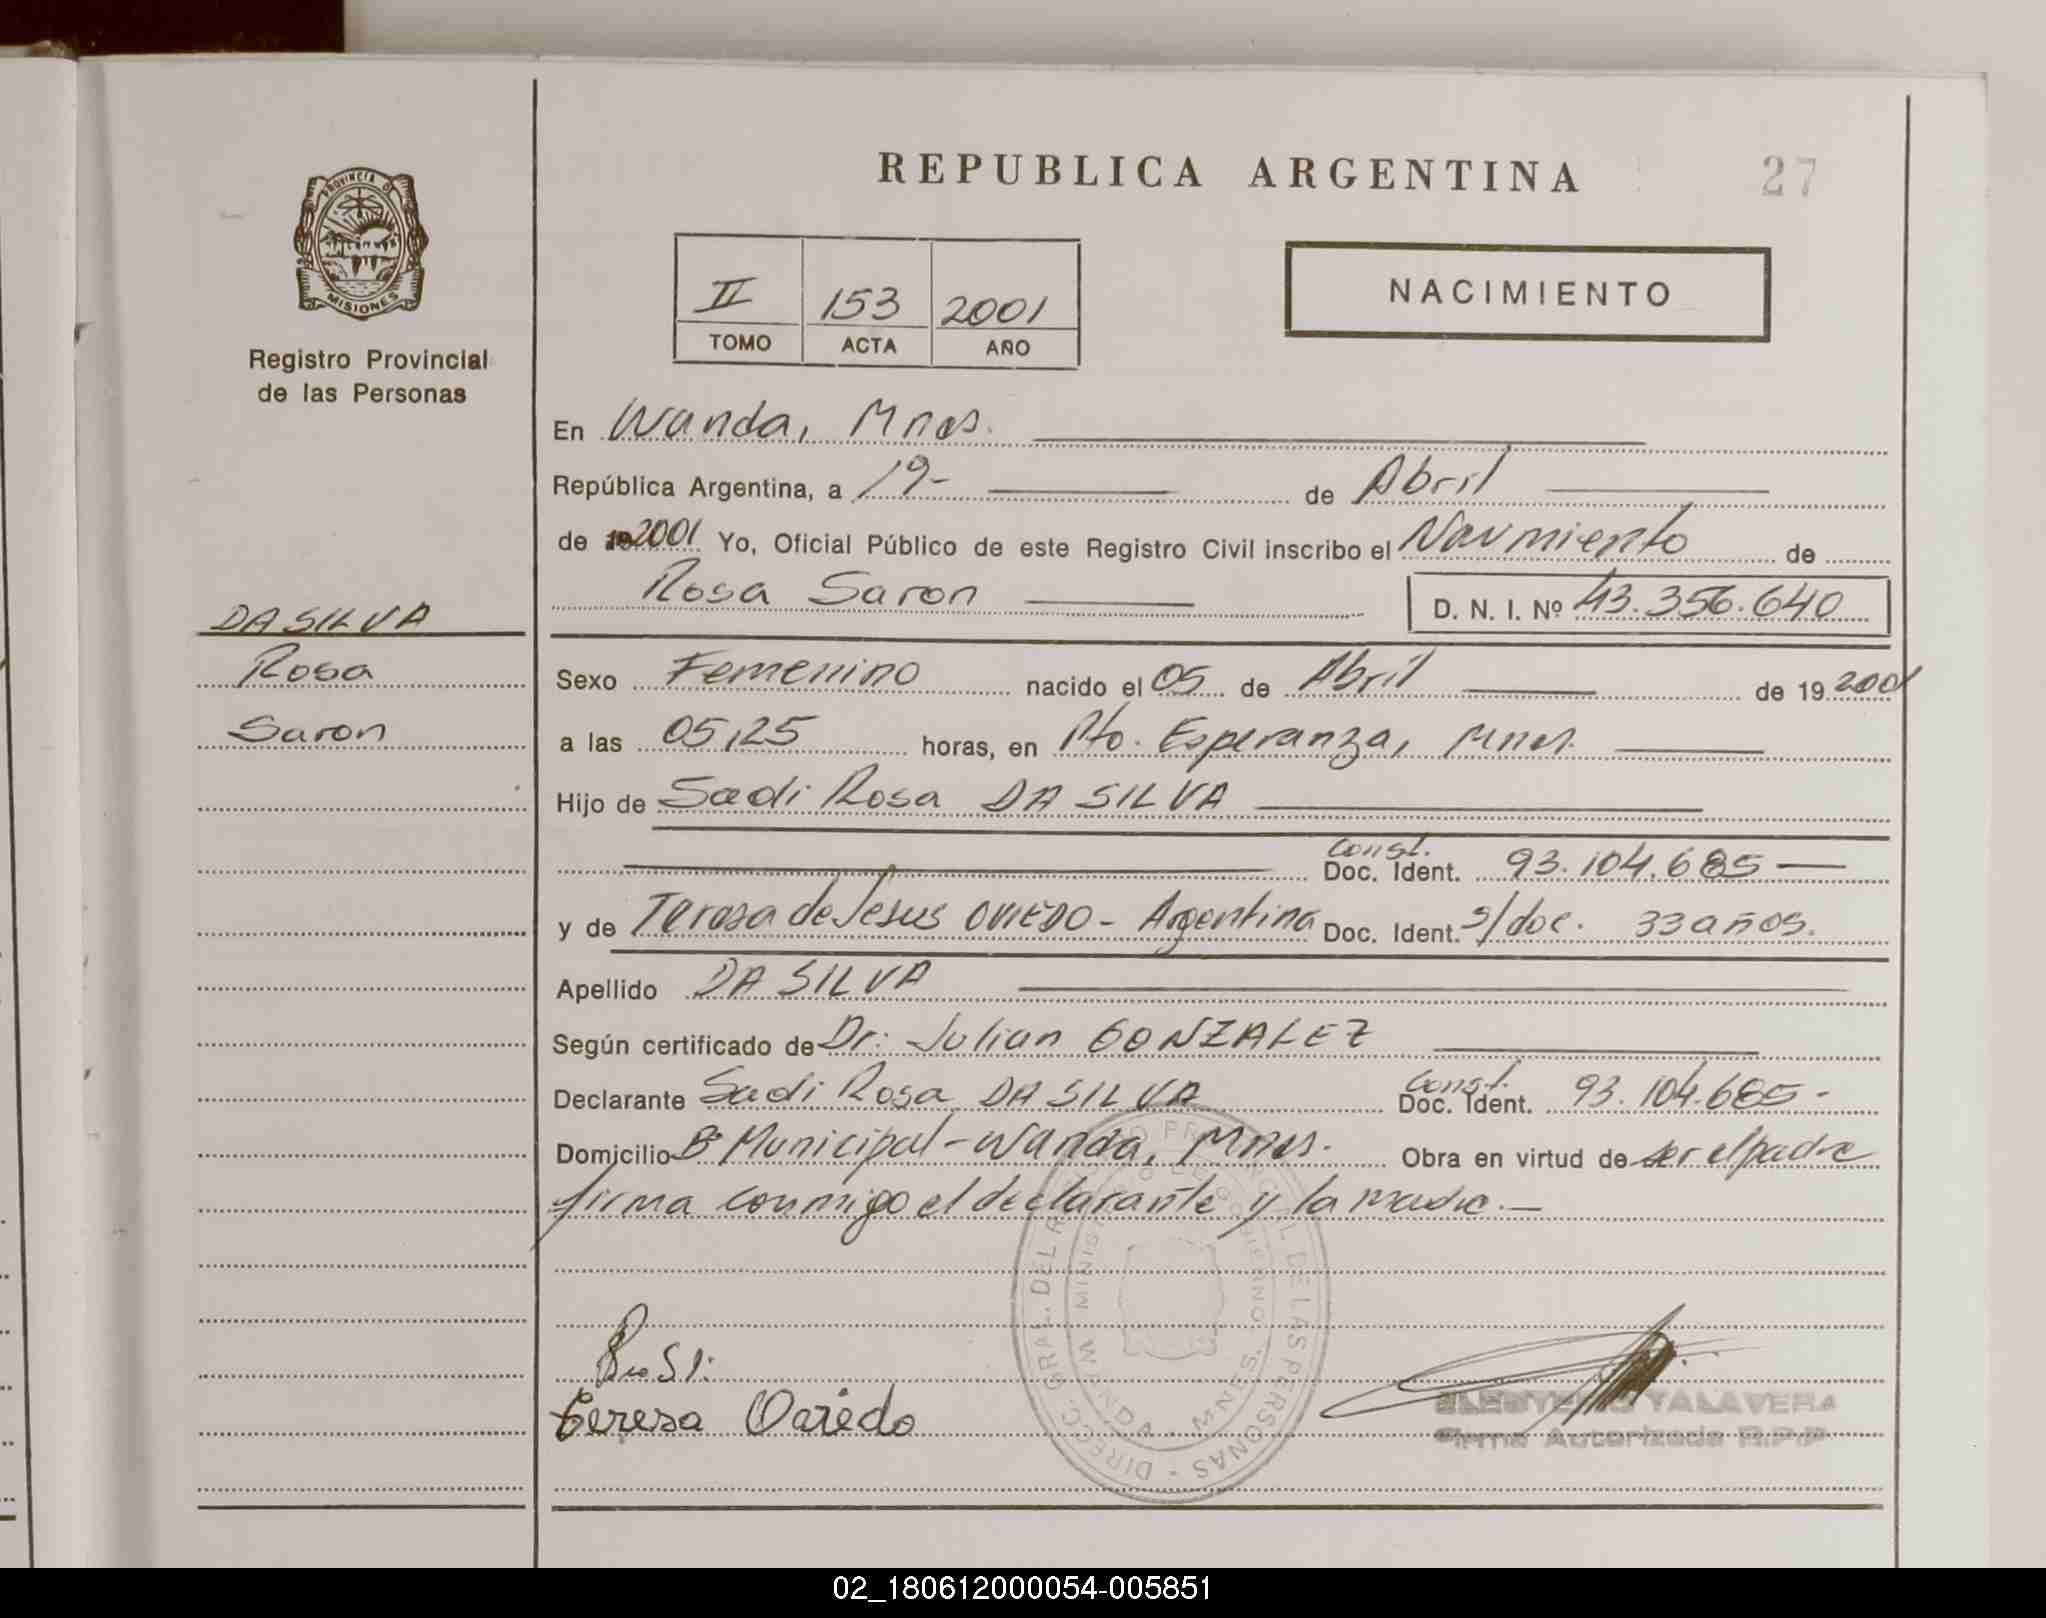 REPUBLICA ARGENTINA
27
PROVINCIA D
MISIONES
Registro Provincial
de las Personas
II 153 2001
TOMO ACTA AÑO
NACIMIENTO
En Wanda, Mnes.
República Argentina, a 19- de Abril
de 2001 Yo, Oficial Público de este Registro Civil inscribo el Nacimiento de
Rosa Saron D. N. I. Nº 43.356.640
DA SILVA
Rosa
Saron
Sexo Femenino nacido el 05 de Abril de 19 2001
a las 05,25 horas, en Pto. Esperanza, Mnes.
Hijo de Sadi Rosa DA SILVA
Const.
Doc. Ident. 93.104.685
y de Teresa de Jesus OVIEDO - Argentina Doc. Ident. s/doc. 33 años.
Apellido DA SILVA
Según certificado de Dr. Julian GONZALEZ
Declarante Sadi Rosa DA SILVA Const. Doc. Ident. 93.104.685-
Domicilio Bº Municipal - Wanda, Mnes. Obra en virtud de ser el padre
firma conmigo el declarante y la madre.—
Teresa Oviedo
DIRECC. GRAL. DEL REGISTRO PROVINCIAL DE LAS PERSONAS
WANDA - MNES.
TALAVERA
Firma Autorizada R.P.P
02_180612000054-005851